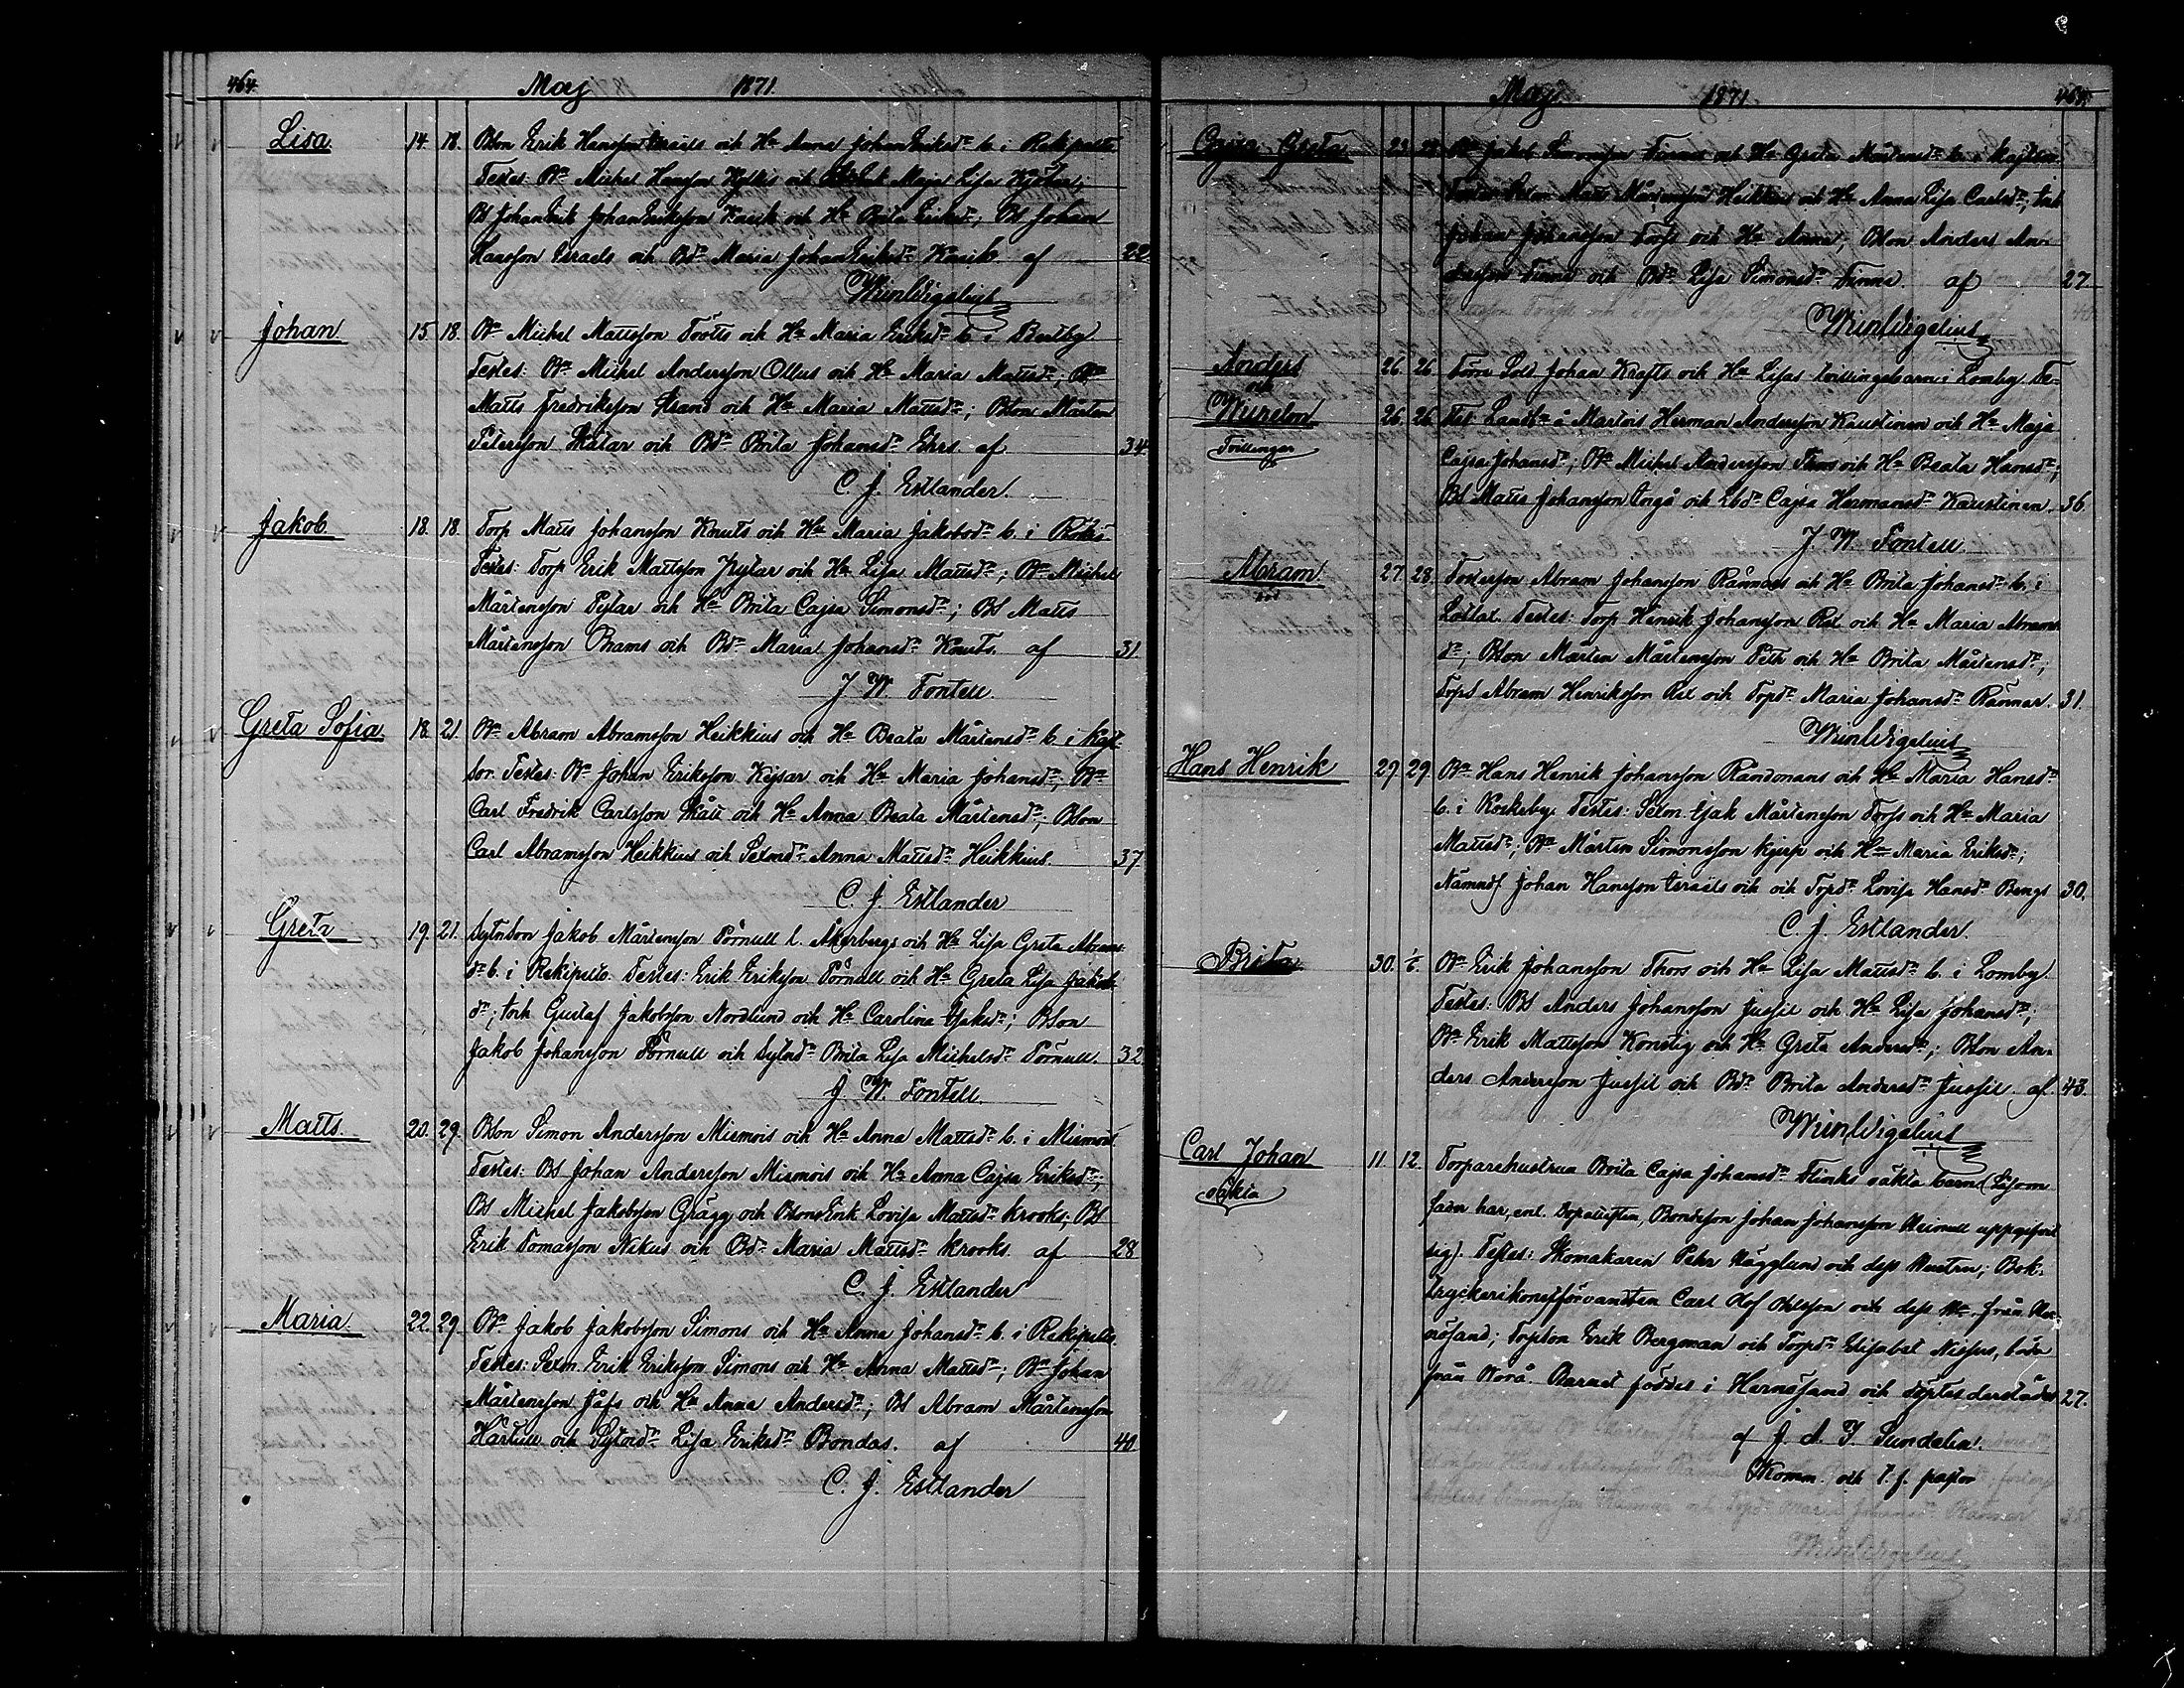 464. Maj 1871.
Lisa 14. 18. Bson Erik Hansson Israels och Hu Anna Johan Eriksdr b. i Rekipelto.
Testes: Bn Michel Hansson och Maja Lisa
Bs Johan Erik Johan Eriksson Knuik och Hu Brita Eriksdr; Bs Johan
Hansson Israels och Bdr Maria Johan Eriksdr Knuik. af 22.
Wirzelius
Johan 15. 18. Bn Michel Mattsson Tootts och Hu Maria Eriksdr b. i Bertby
Testes: Bn Michel Andersson Ollus och Hu Maria Mattsdr; Bn
Matts Fredriksson Strand och Hu Maria Mattsdr; Bson Mårten
Petersson Skatar och Bdr Brita Johansdr Ehrs. af 34
C. J. Estlander.
Jakob 18. 18. Torp Matts Johansson Knuts och Hu Maria Jakobsdr b. i
Testes: Torp Erik Mattsson och Hu Lisa Mattsdr; Bn Michel
Mårtensson Pytar och Hu Brita Cajsa Simonsdr; Bs Matts
Mårtensson Brams och Bdr Maria Johansdr Knuts. af 31.
J. W. Fontell.
Greta Sofia 18. 21. Bn Abram Abramsson Heikkius och Hu Beata Mårtensdr b. i Kaj-
tsor. Testes: Bn Johan Eriksson Kejsar och Hu Maria Johansdr; Bn
Carl Fredrik Carlsson Skått och Hu Anna Beata Mårtensdr; Bson
Carl Abramsson Heikkius och Anna Mattsdr Heikkius. 37.
C. J. Estlander
Greta 19. 21. Sytnson Jakob Mårtensson Pörnull l. Åkerbergs och Hu Lisa Greta Abrams-
dr b. i Rekipelto. Testes: Erik Eriksson Pörnull och Hu Greta Lisa Jakobs-
dr; Gustaf Jakobsson Nordlund och Hu Carolina Isaksdr; Bson
Jakob Johansson Pörnull och Sytndr Brita Lisa Michelsdr Pörnull. 32
J. W. Fontell.
Matts. 20. 29. Bson Simon Andersson Miemois och Hu Anna Mattsdr b. i Miemois.
Testes: Bs Johan Andersson Miemois och Hu Anna Cajsa Eriksdr;
Bs Michel Jakobsson Grägg och Lovisa Mattsdr Krooks; Bs
Erik Tomasson Nikus och Bdr Maria Mattsdr Krooks. af 28
C. J. Estlander
Maria. 22. 29. Bn Jakob Jakobsson Simons och Hu Anna Johansdr b. i Rekipelto.
Testes: Sexm. Erik Eriksson Simons och Hu Anna Mattsdr; Bn Johan
Mårtensson Jåfs och Hu Anna Andersdr; Bs Abram Mårtensson
Härtull och Sytndr Lisa Eriksdr Bondas. af 40
C. J. Estlander
Maj. 1871.
Cajsa Greta 23. Bn Jakob Simonsson Finne och Hu Greta Mårtensdr b. i Kajtsor.
Testes: Matts Mårtensson Heikkius och Hu Anna Lisa Carlsdr;
Johan Johansson och Hu Anna; Bson Anders An-
dersson Finne och Bdr Lisa Simonsdr Finne. af 27
Wirzelius
Anders 26. 26. Förre Sold Johan Krafts och Hu Lisas tvillingebarn i Lomby. Te-
och
26. 26. stes: Landbn å Martois Herman Andersson Kaustinen och Hu Maja
Tvillingar Cajsa Johansdr; Bn Michel Andersson Thors och Hu Beata Hansdr;
Bs Matts Johansson Ångå och Lbdr Cajsa Hermansdr Kaustinen. 36.
J. W. Fontell.
Abram 27. 28. Abram Johansson Rånnars och Hu Brita Johansdr b. i
Lotlax. Testes: Torp Henrik Johansson Rex och Hu Maria Abrams-
dr; Bson Mårten Mårtensson Peth och Hu Brita Mårtensdr;
Torps Abram Henriksson Rex och Torpdr Maria Johansdr Rånnar. 31.
Wirzelius
Hans Henrik 29. 29. Bn Hans Henrik Johansson och Hu Maria Hansdr
b. i Koskeby. Testes: Isak Mårtensson Torfs och Hu Maria
Mattsdr; Bn Mårten Simonsson Kjerp och Hu Maria Eriksdr;
Nämnds Johan Hansson Israels och och Torpdr Lovisa Hansdr Bengs 30.
C. J. Estlander.
Brita 30. 1/6. Bn Erik Johansson Thors och Hu Lisa Mattsdr b. i Lomby.
Testes: Bs Anders Johansson Jussil och Hu Lisa Johansdr;
Bn Erik Mattsson Konstig och Hu Greta Andersdr; Bson An-
ders Andersson Jussil och Bdr Brita Andersdr Jussil. af. 43.
Wirzelius
Carl Johan 11. 12. Torparehustrun Brita Cajsa Johansdr Flinks oäkta barn (Såsom
oäkta fader har, enl. Bondesson Johan Johansson uppgifvit
sig). Testes: Skomakaren Pehr Hägglund och dess Hustru; Bok-
tryckerikonstförvandten Carl Olof Olsson och dess Hu från Her-
nösand; Torpson Erik Bergman och Torpdr Elisabet Nissus, båda
från Wörå. Barnet föddes i Hernösand och döptes derstädes 27.
af J. A. T. Sundelin.
Komm. och t. f. pastor